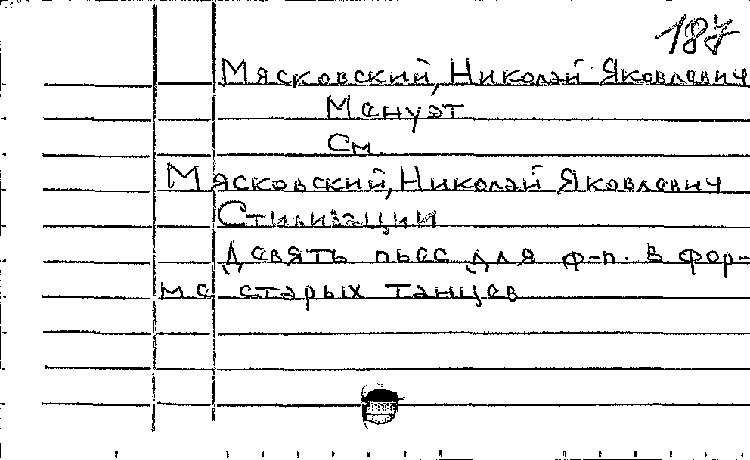 187
Мясковский, Николай Яковлевич
Менуэт
См.
Мясковский, Николай Яковлевич
Стилизации
Девять пьес для ф-п. в фор-
ме старых танцев